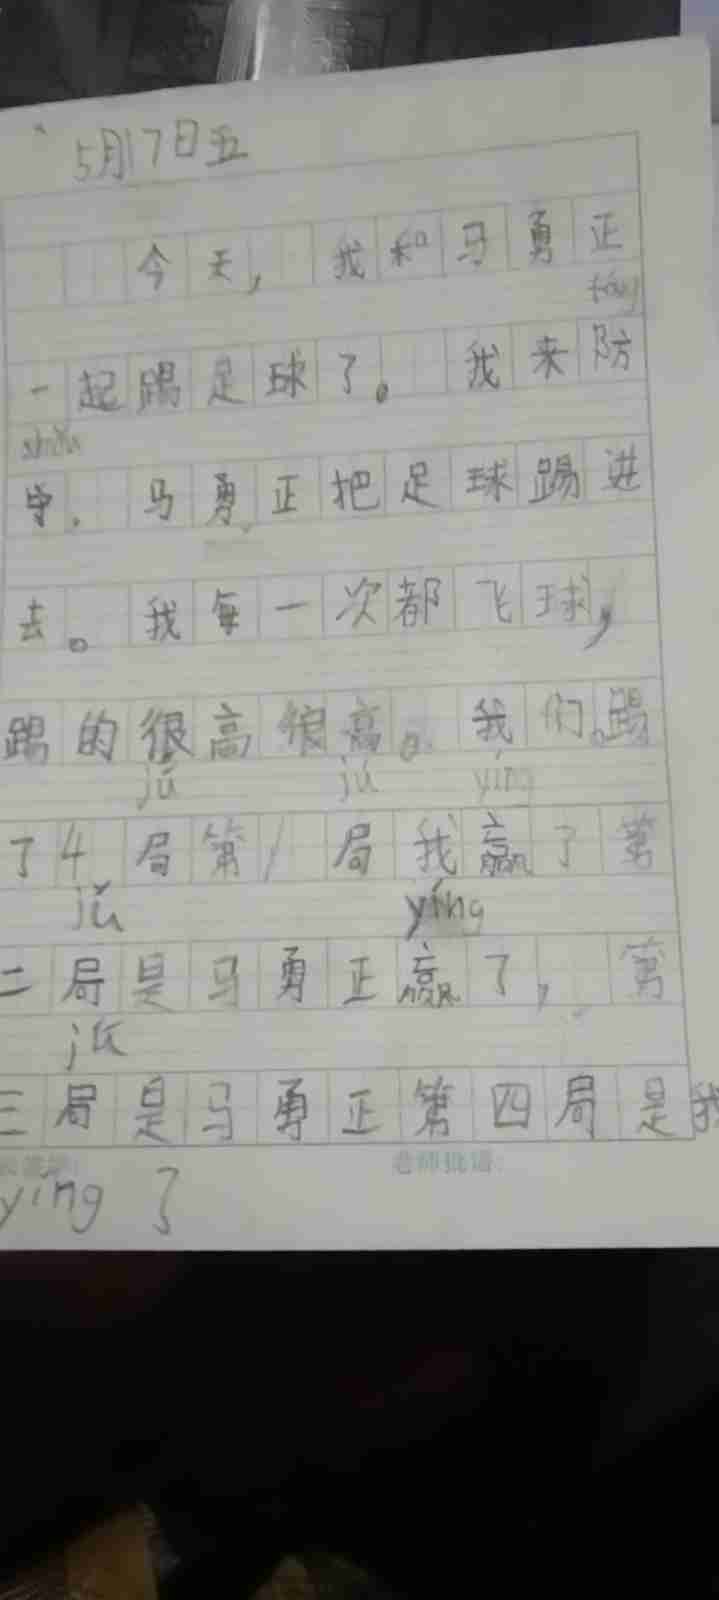 5月17日五
今天,我和马勇正
fáng
一起踢足球了。我来防
shǒu
守,马勇正把足球踢进
去。我每一次都飞球,
踢的很高很高。我们踢
jú jú yíng
了4局第1局我赢了第
jǔ yíng
二局是马勇正赢了,第
jú
三局是马勇正第四局是我
老师批语:
yíng了